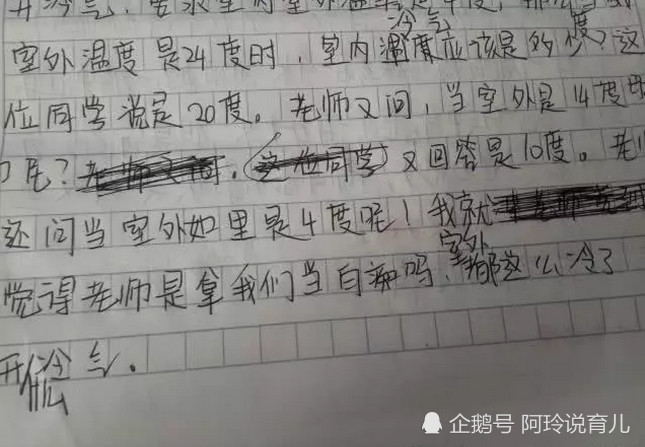 开冷气，要求室内室外温差是4度，那么当
冷气 度
室外温度是24度时，室内应该是多少？这
位同学说是20度。老师又问，当室外是14度
呢？又回答是10度。老
还问当室外如里是4度呢！我就
室外
觉得老师是拿我们当白痴吗、都这么冷了
开冷气．
什么
企鹅号 阿玲说育儿